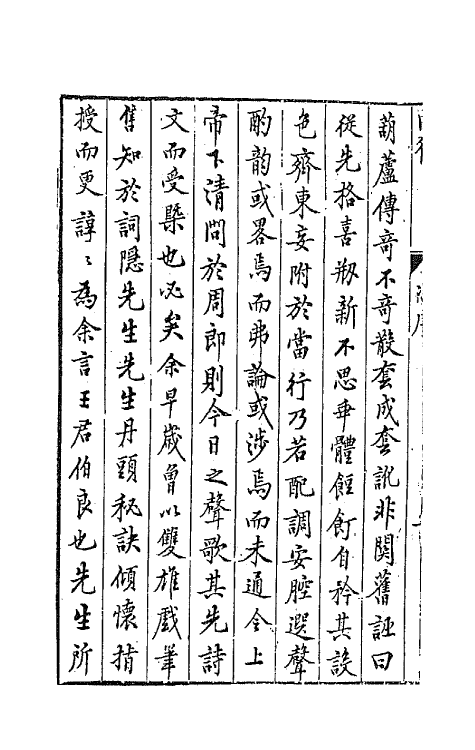 葫蘆傳竒不竒散套成套訛非関舊誣曰
從先格喜剏新不思乖體飪飣自矜其設
色齊東妄附於當行乃若配調安腔選聲
酌韵或畧焉而弗論或涉焉而未通令上
帝下清問於周郎則今日之聲歌其先詩
文而受槩也必矣余早歲曾以雙雄戲筆
售知於詞隱先生先生丹頭秘訣傾懷指
授而更諄〻為余言王君伯良也先生所